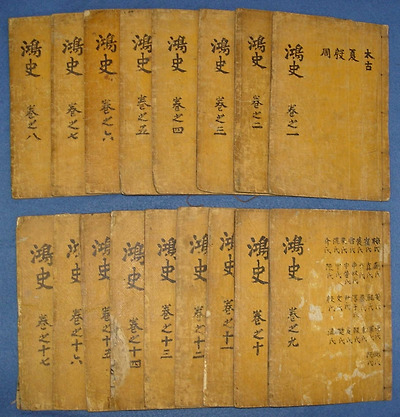 太古
夏
殷
周
鴻史 卷之一
鴻史 卷之二
鴻史 卷之三
鴻史 卷之四
鴻史 卷之五
鴻史 卷之六
鴻史 卷之七
鴻史 卷之八
鴻史 卷之九
鴻史 卷之十
鴻史 卷之十一
鴻史 卷之十二
鴻史 卷之十三
鴻史 卷之十四
鴻史 卷之十五
鴻史 卷之十六
鴻史 卷之十七